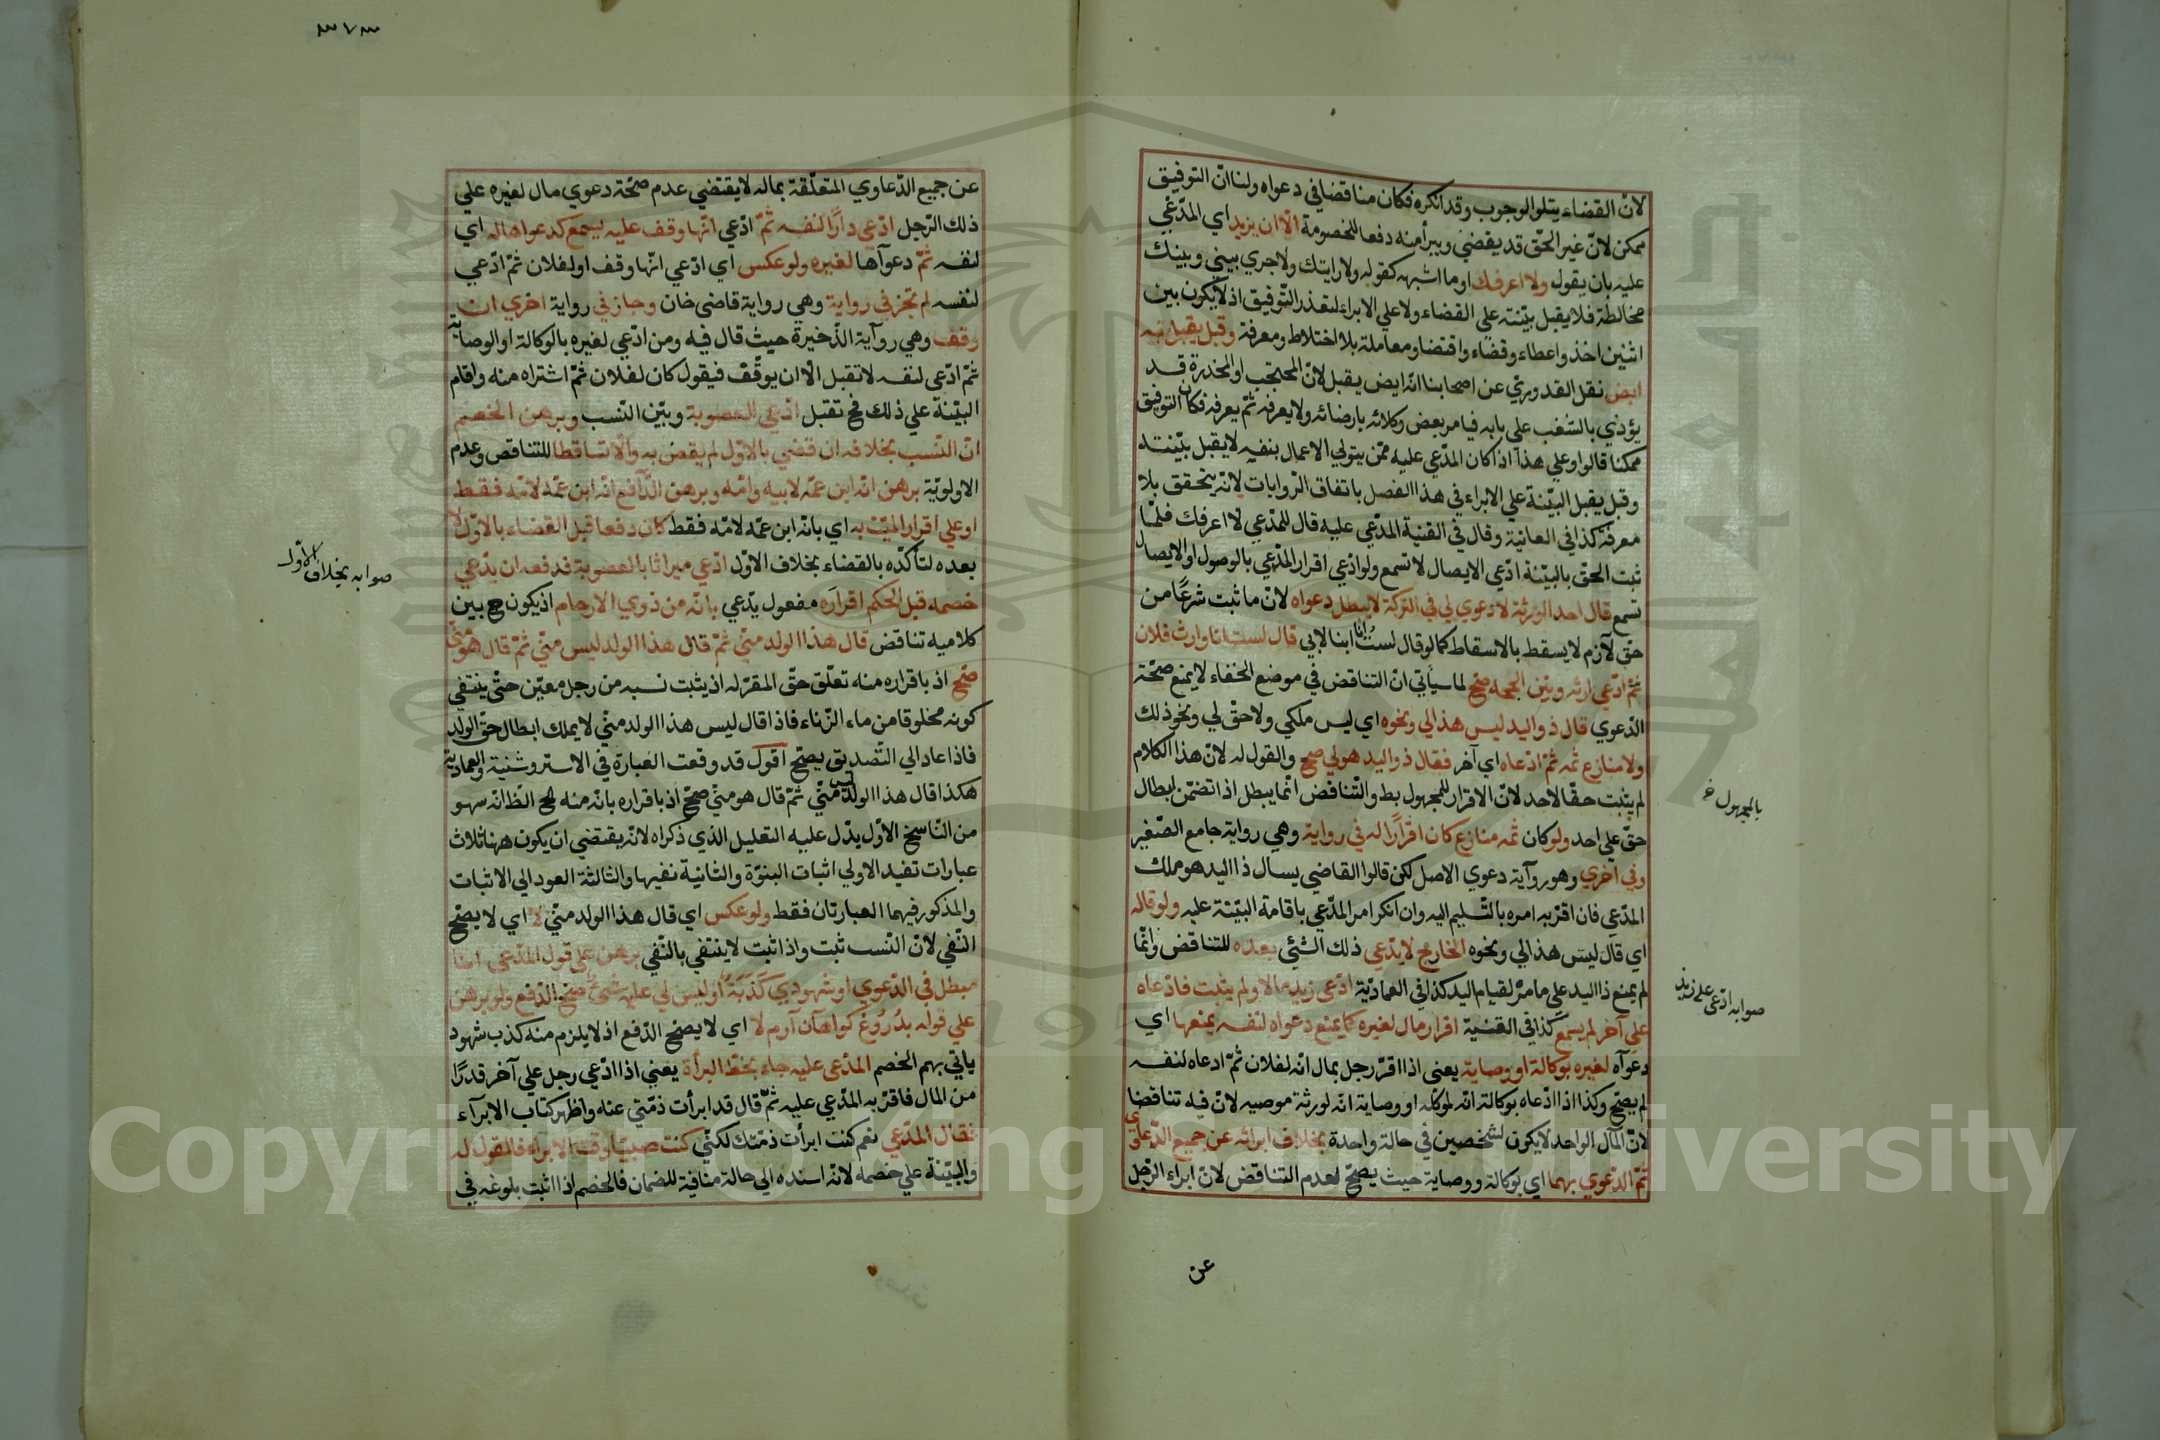 لانّ القضاء يتلو الوجوب وقد انكره فكان مناقضا في دعواه ولنا انّ التوفيق
ممكن لانّ غير الحقّ قد يقضي ويبرأ منه دفعا للخصومة الّا ان يزيد اي المدّعي
عليه بان يقول ولا اعرفك او ما اشبهه كقوله ولا رايتك ولا جري بيني وبينك
مخالطة فلا يقبل بيّنته علي القضاء ولا علي الابراء لتعذر التّوفيق اذ لا يكون بين
اثنين اخذ واعطاء وقضاء واقتضاء ومعاملة بلا اختلاط ومعرفة وقيل يقبل به
ايض نقل القدوري عن اصحابنا انّه ايض يقبل لانّ المحتجب او المخدرة قد
يؤذي بالشغب علي بابه فيامر بعض وكلائه بارضائه ولا يعرفه ثمّ يعرفه فكان التوفيق
ممكنا قالوا وعلي هذا اذا كان المدّعي عليه ممّن يتولي الاعمال بنفسه لا يقبل بيّنته
وقيل يقبل البيّنة علي الابراء في هذا الفصل باتفاق الرّوايات لانّه يتحقق بلا
معرفة كذا في العناية وقال في القنية المدّعي عليه قال للمدّعي لا اعرفك فلمّا
ثبت الحقّ بالبيّنة ادّعي الايصال لا تسمع ولو ادّعي اقرار المدّعي بالوصول او الايصال
تسمع قال احد الورثة لا دعوي لي في التركة لا يبطل دعواه لانّ ما ثبت شرعًا من
حقّ لازم لا يسقط بالاسقاط كما لو قال لستُ انا ابنا لابي قال لست انا وارث فلان
ثمّ ادّعي ارثه وبيّن الجهة صحّ لما سيأتي انّ التناقض في موضع الخفاء لا يمنع صحّة
الدّعوي قال ذو اليد ليس هذا لي ونحوه اي ليس ملكي ولا حقّ لي ونحو ذلك
ولا منازع ثمه ثمّ ادّعاه اي آخر فقال ذو اليد هو لي صحّ والقول له لانّ هذا الكلام
لم يثبت حقّا لاحد لانّ الاقرار للمجهول بط والتّناقض انّما يبطل اذا تضمّن ابطال
حقّ علي احد ولو كان ثمه منازع كان اقرارًا له في رواية وهي رواية جامع الصّغير
وفي اخري وهو رواية دعوي الاصل لكن قالوا القاضي يسال ذا اليد هو ملك
المدّعي فان اقرّ به امره بالتّسليم اليه وان انكر امر المدّعي باقامة البيّنة عليه ولو قاله
اي قال ليس هذا لي ونحوه الخارج لا يدّعي ذلك الشّئ بعده للتناقض وانّما
لم يمنع ذا اليد علي ما مرّ لقيام اليد كذا في العماديّة ادّعي زيد مالا ولم يثبت فادّعاه
علي آخر لم يسمع كذا في القنية اقرار مال لغيره كما يمنع دعواه لنفسه يمنعها اي
دعواه لغيره بوكالة او وصاية يعني اذا اقرّ رجل بمال انّه لفلان ثمّ ادعاه لنفسه
لم يصحّ وكذا اذا ادّعاه بوكالة انّه لموكّله او وصاية انّه لورثة موصيه لانّ فيه تناقضا
لانّ المال الواحد لا يكون لشخصين في حالة واحدة بخلاف ابرائه عن جميع الدّعاوي
ثمّ الدّعوي بهما اي بوكالة ووصاية حيث يصحّ لعدم التناقض لانّ ابراء الرّجل
عن
بالمجهول
صوابه ادّعي علي زيد
٣٧٣
عن جميع الدّعاوي المتعلّقة بماله لا يقتضي عدم صحّة دعوي مال لغيره علي
ذلك الرّجل ادّعي دارًا لنفسه ثمّ ادّعي انّها وقف عليه يسمع كدعواها له اي
لنفسه ثمّ دعواها لغيره ولو عكس اي ادّعي انّها وقف او لفلان ثمّ ادّعي
لنفسه لم تجز في رواية وهي رواية قاضي خان وجاز في رواية اخري ان
وقف وهي رواية الذّخيرة حيث قال فيه ومن ادّعي لغيره بالوكالة او الوصاية
ثمّ ادّعي لنفسه لا تقبل الّا ان يوقّف فيقول كان لفلان ثمّ اشتراه منه واقام
البيّنة علي ذلك فح تقبل ادّعي العصوبة وبيّن النّسب وبرهن الخصم
انّ النّسب بخلافه ان قضي بالاوّل لم يقض به والّا تساقطا للتناقض وعدم
الاولويّة برهن انّه ابن عمّه لابيه وامّه وبرهن الدّافع انّه ابن عمّه لامّه فقط
او علي اقرار الميّت به اي بانّه ابن عمّه لامّه فقط كان دفعا قبل القضاء بالاوّل لا
بعده لتأكّده بالقضاء بخلاف الاوّل ادّعي ميراثا بالعصوبة فدفعه ان يدّعي
خصمه قبل الحكم اقراره مفعول يدّعي بانّه من ذوي الارحام اذ يكون ح بين
كلاميه تناقض قال هذا الولد منّي ثمّ قال هذا الولد ليس منّي ثمّ قال هو منّي
صحّ اذ باقراره منه تعلّق حقّ المقرّ له اذ يثبت نسبه من رجل معيّن حتّي ينتفي
كونه مخلوقا من ماء الزّناء فاذا قال ليس هذا الولد منّي لا يملك ابطال حقّ الولد
فاذا عاد الي التّصديق يصحّ اقول قد وقعت العبارة في الاستروشنية والعمادية
هكذا قال هذا الولد ليس منّي ثمّ قال هو منّي صحّ اذ باقراره بانّه منه الخ الظ انّه سهو
من النّاسخ الاوّل يدّل عليه التعليل الذي ذكراه لانّه يقتضي ان يكون ههنا ثلاث
عبارات تفيد الاولي اثبات البنوّة والثانية نفيها والثالثة العود الي الاثبات
والمذكور فيهما العبارتان فقط ولو عكس اي قال هذا الولد منّي لا اي لا يصحّ
النّفي لانّ النّسب ثبت واذا ثبت لا ينتفي بالنّفي برهن علي قول المدّعي انا
مبطل في الدّعوي او شهودي كذبة او ليس لي عليه شئ صحّ الدّفع ولو برهن
علي قوله بدُروُغ كواهان آرم لا اي لا يصحّ الدّفع اذ لا يلزم منه كذب شهود
ياتي بهم الخصم المدّعي عليه جاء بخطّ البرأة يعني اذا ادّعي رجل علي آخر قدرًا
من المال فاقرّ به المدّعي عليه ثمّ قال قد ابرأت ذمّتي عنه واظهر كتاب الابراء
فقال المدّعي نعم كنت ابرأت ذمّتك لكنّي كنت صبيّا وقت الابراء فالقول له
والبيّنة علي خصمه لانّه اسنده الي حالة منافية للضمان فالخصم اذا اثبت بلوغه في
صوابه بخلاف الاوّل
Copyright © King Saud University
1957